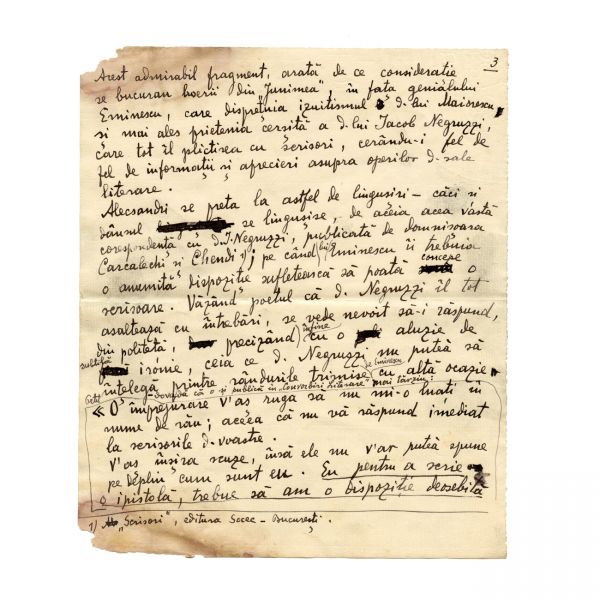 3
Acest admirabil fragment, arată de ce considerație
se bucurau boerii din "Junimea", în fața genialului
Eminescu, care disprețuia izuitismul d-lui Maiorescu,
și mai ales prietenia cerșită a d-lui Jacob Negruzzi,
care tot îl plictisea cu scrisori, cerându-i fel de
fel de informații și aprecieri asupra operilor d-sale
literare.
Alecsandri se preta la astfel de lingușiri – căci și
dânsul se lingușise, de aceia acea vastă
corespondență cu d. J. Negruzzi, publicată de domnișoara
Carcalechi și Chendi 1); pe când lui Eminescu îi trebuia
o anumită dispoziție sufletească să poată concepe o
scrisoare. Văzând poetul că d. Negruzzi îl tot
asaltează cu întrebări, se vede nevoit să-i răspund,
din politeță, precizând cu o fină aluzie de
subtilă ironie, ceia ce d. Negruzzi nu putea să
înțeleagă printre rândurile trimise de Eminescu cu altă ocazie
dovadă că o și publică în "Convorbiri Literare" mai târziu:
« O împrejurare v'aș ruga să nu mi-o luați în
nume de rău; aceea că nu vă răspund imediat
la scrisorile d-voastre.
V'aș înșira scuze, însă ele nu v'ar putea spune
pe deplin cum sunt eu. Eu pentru a scrie
o ipistolă, trebue să am o dispoziție deosebită
1) "Scrisori", editura Socec – București.